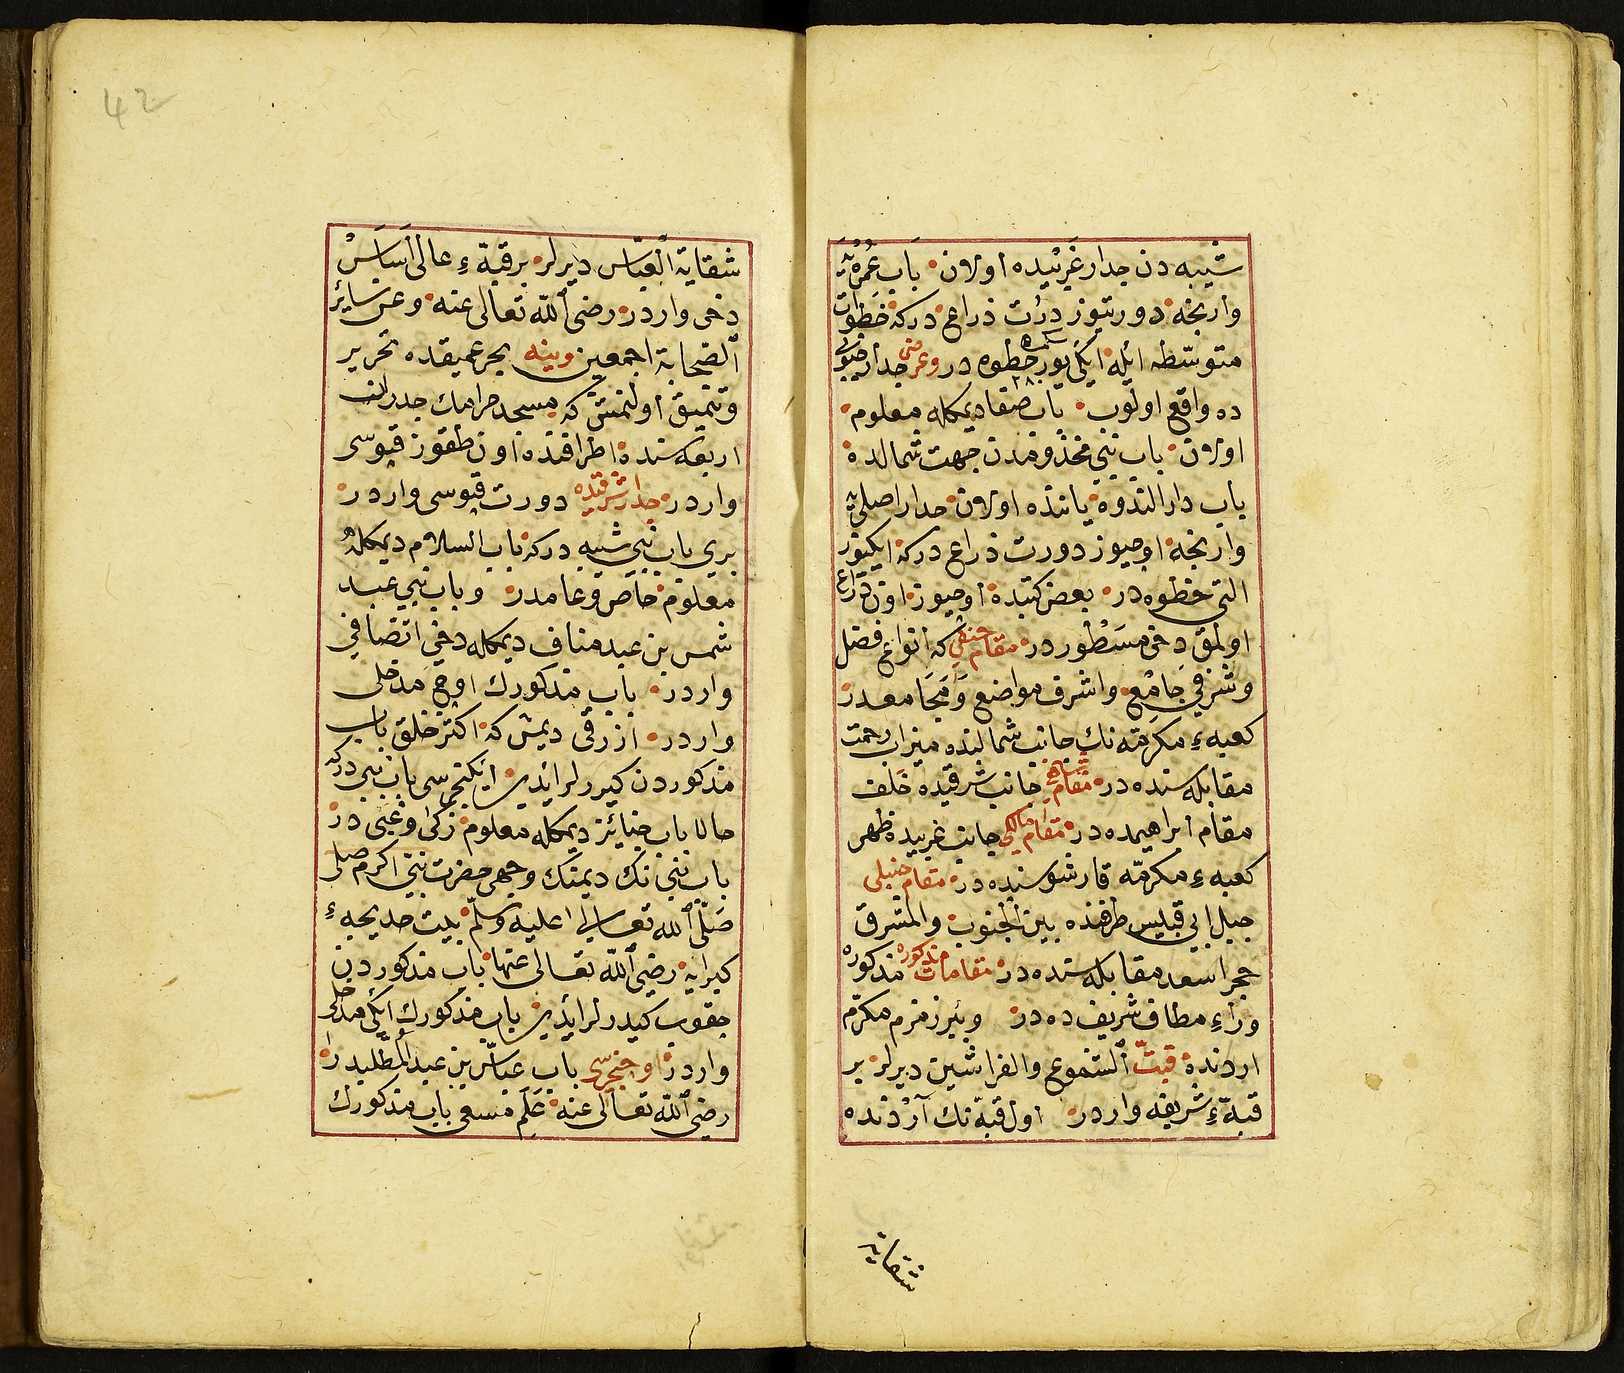 شیبه دن جدار غربیده اولان باب عمره یه
وارنجه دورتیوز درت ذراع درکه خطوات
متوسطه ایله ایکی یوز سکسن خطوه در وعرضی جدار جنوبی
۲۸۰
ده واقع اولوب باب صفا دیمکله معلوم
اولان باب بنی مخزومدن جهت شمالده
باب دار الندوه یاننده اولان جدار اصلی یه
وارنجه اوچیوز دورت ذراع درکه ایکیوز
التی خطوه در بعض کتبده اوچیوز اون ذراع
اولمق دخی مسطور در مقام حنفی که انواع فضل
وشرفی جامع واشرف مواضع ومجامعدر
کعبهٔ مکرمه نك جانب شمالنده میزاب رحمت
مقابله سنده در مقام شافعی جانب شرقیده خلف
مقام ابراهیمده در مقام مالکی جانب غربیده ظهر
کعبهٔ مکرمه قارشوسنده در مقام حنبلی
جبل ابی قبیس طرفنده بین الجنوب والمشرق
حجر اسعد مقابله سنده در مقامات مذکوره مذکوره
وراء مطاف شریف ده در وبئر زمزم مکرم
اردنده قبة الشموع والفراشین دیرلر بر
قبهٔ شریفه واردر اول قبه نك آردنده
شقایة
42
شقایة العباس دیرلر بر قبهٔ عالی اساس
دخی واردر رضی الله تعالی عنه وعن سائر
الصحابة اجمعین وینه بحر عمیقده تحریر
وتنمیق اولنمش که مسجد حرامك جدران
اربعه سنده اطرافنده اون طقوز قپوسی
واردر جدار شرقیده دورت قپوسی واردر
بری باب بنی شیبه درکه باب السلام دیمکله
معلوم خاص وعامدر وباب بنی عبد
شمس بن عبد مناف دیمکله دخی اتصافی
واردر باب مذکورك اوچ مدخلی
واردر ازرقی دیمش که اکثر خلق باب
مذکوردن کیررلر ایدی ایکنجیسی باب نبی درکه
حالا باب جنائز دیمکله معلوم زکی وغبی در
باب نبی نك دیمنك وجهی حضرت نبی اکرم صلی
صلی الله تعالی علیه وسلم بیت خدیجهٔ
کبرایه رضی الله تعالی عنها باب مذکوردن
چقوب کیدرلر ایدی باب مذکورك ایکی مدخلی
واردر اوچنجیسی باب عباس بن عبد المطلبدر
رضی الله تعالی عنه علم مسعی باب مذکورك